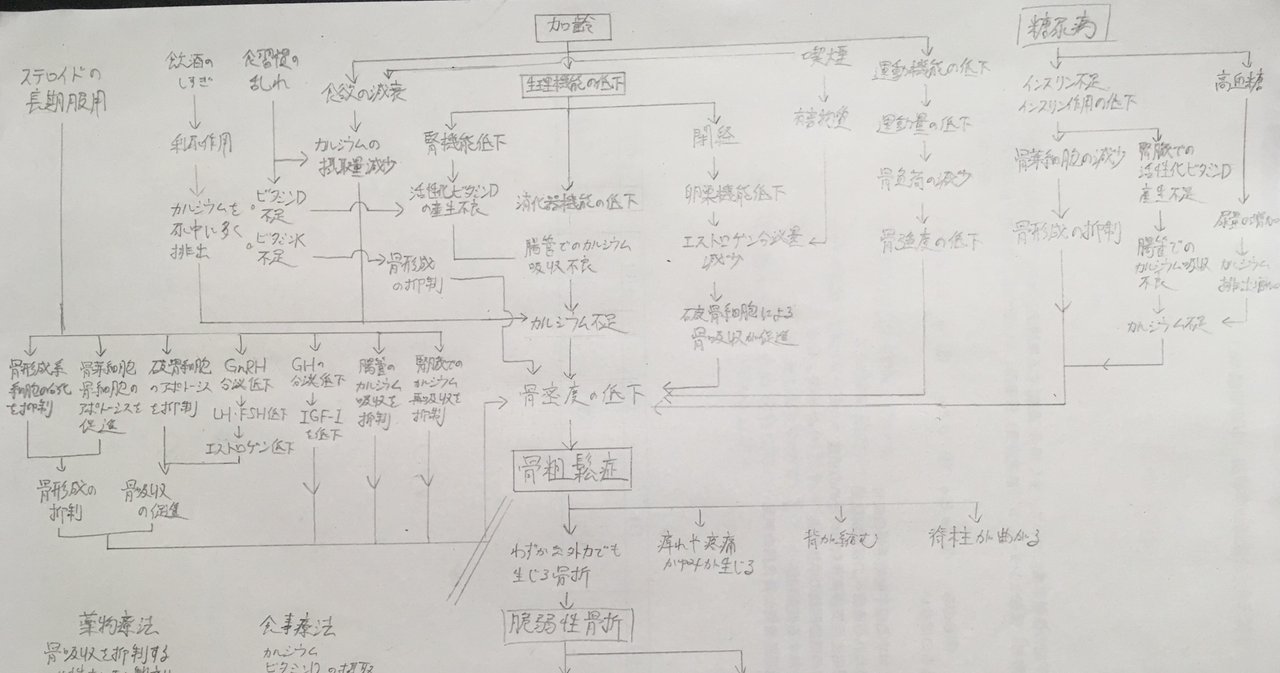 加齢
糖尿病
ステロイドの
長期服用
飲酒の
しすぎ
食習慣の
乱れ
食欲の減衰
生理機能の低下
喫煙
有害物質
運動機能の低下
運動量の低下
骨負荷の減少
骨強度の低下
インスリン不足
インスリン作用の低下
高血糖
利尿作用
カルシウムを
尿中に多く
排出
カルシウムの
摂取量減少
ビタミンD
不足
ビタミンK
不足
腎機能低下
活性化ビタミンD
の産生不良
骨形成
の抑制
消化器機能の低下
腸管でのカルシウム
吸収不良
カルシウム不足
閉経
卵巣機能低下
エストロゲン分泌量
減少
破骨細胞による
骨吸収が促進
骨芽細胞の減少
骨形成の抑制
腎臓での
活性化ビタミンD
産生不足
腸管での
カルシウム吸収
不良
尿量の増加
カルシウム
カルシウム不足
骨形成系
を抑制
骨芽細胞
骨細胞の
アポトーシスを
促進
破骨細胞
のアポトーシス
を抑制
GnRH
分泌低下
LH・FSH低下
エストロゲン低下
GHの
分泌低下
IGF-1
を低下
腸管の
カルシウム
吸収を
抑制
腎臓での
カルシウム
再吸収を
抑制
骨形成の
抑制
骨吸収
の促進
骨密度の低下
骨粗鬆症
わずかな外力でも
生じる骨折
痺れや疼痛
が生じる
背が縮む
脊柱が曲がる
脆弱性骨折
薬物療法
骨吸収を抑制する
食事療法
カルシウム
ビタミンDの摂取